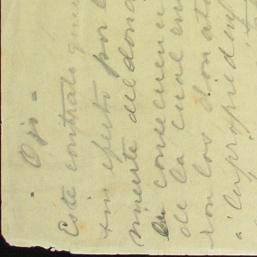 Ojo =
Este contrato que
sin efecto por l
muerte del dona
En consecuenci
de la cual en
ron los donata
a la propiedad